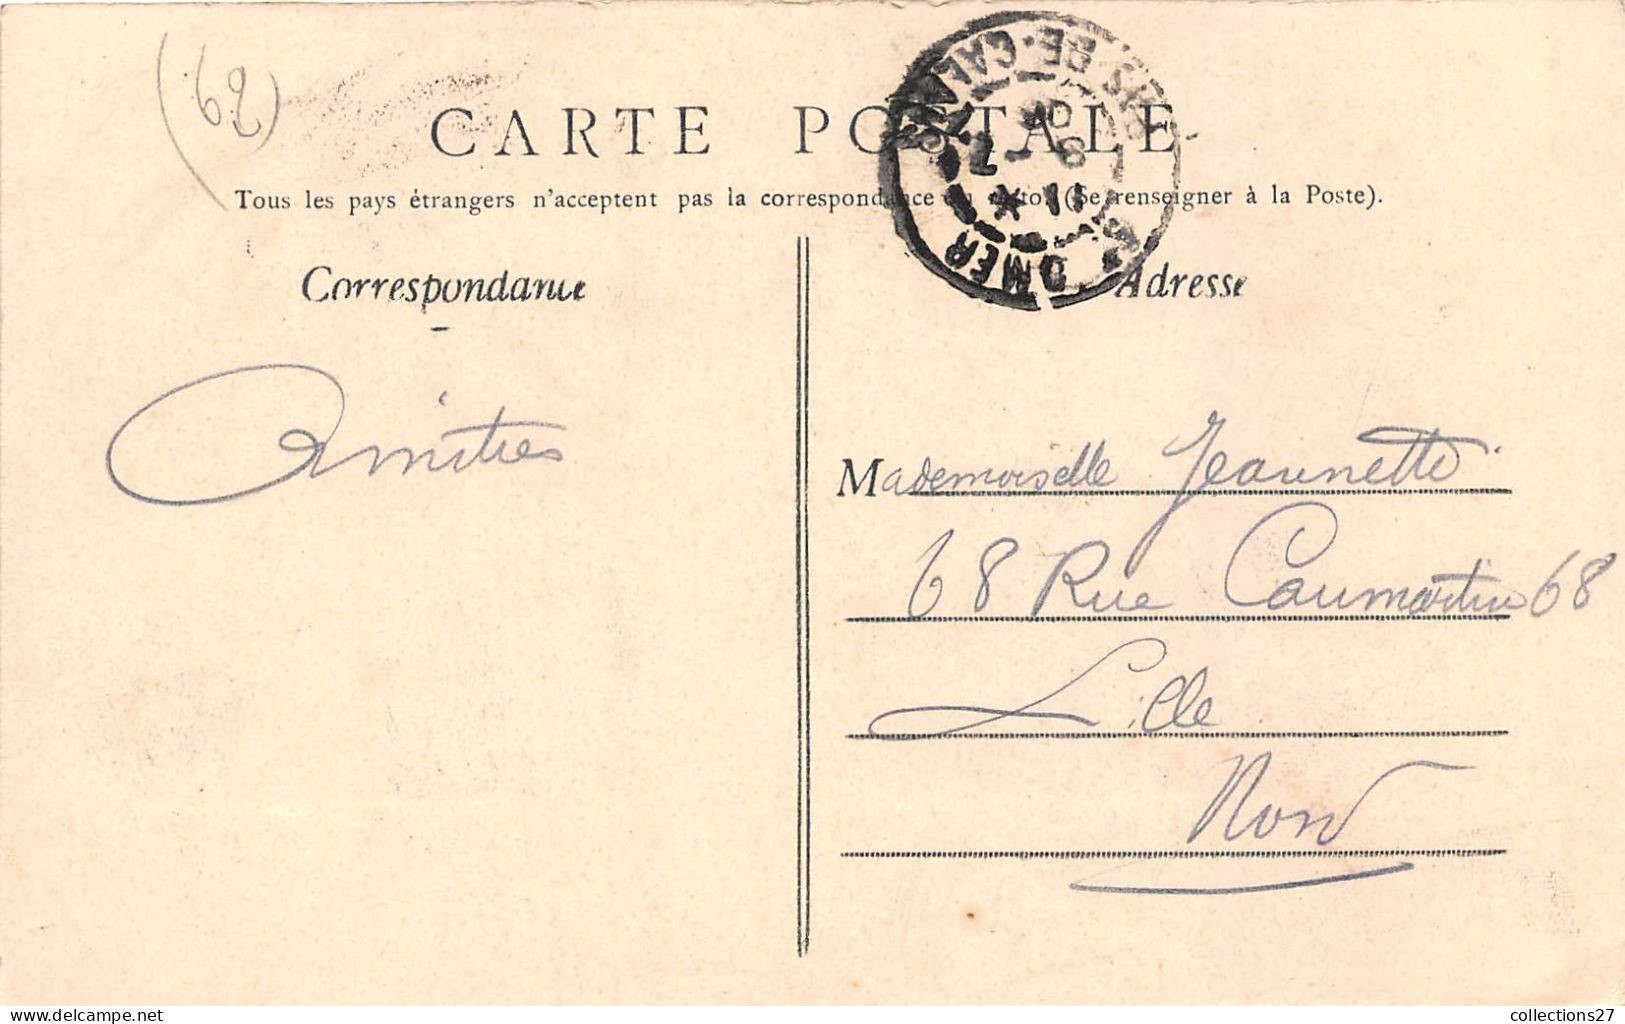 (62)
CARTE POSTALE
Tous les pays étrangers n'acceptent pas la correspondance au recto. (Se renseigner à la Poste).
ST OMER
PAS-DE-CALAIS
Correspondance
Adresse
Amitiés
Mademoiselle Jeannette
68 Rue Caumartin 68
Lille
Nord
delcampe.net
collections27